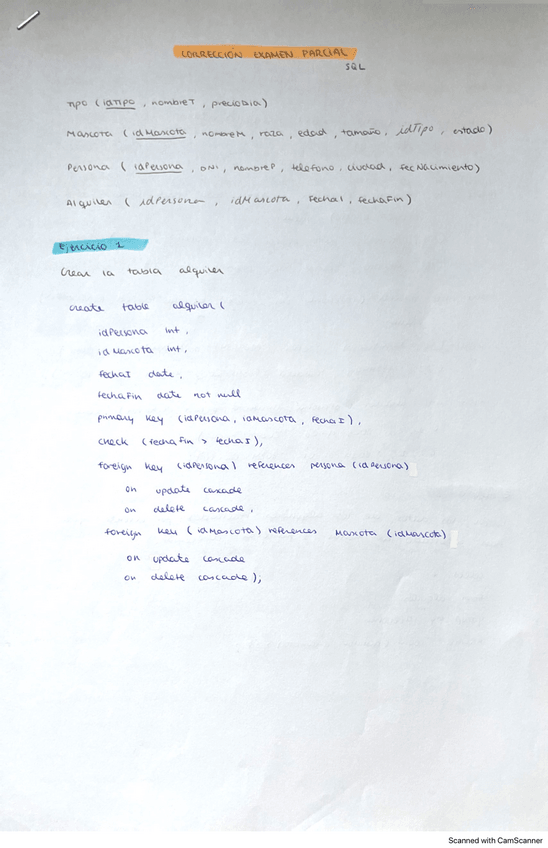 CORRECCIÓN EXAMEN PARCIAL
SQL
Tipo (idTipo, nombreT, precioDia)
Mascota (idMascota, nombreM, raza, edad, tamaño, idTipo, estado)
Persona (idPersona, DNI, nombreP, telefono, ciudad, fecNacimiento)
Alquiler (idPersona, idMascota, FechaI, fechaFin)
Ejercicio 1
Crear la tabla alquiler
create table alquiler (
idPersona int,
idMascota int,
fechaI date,
fechaFin date not null
primary key (idPersona, idMascota, fechaI),
check (fechaFin > fechaI),
foreign key (idPersona) references persona (idPersona)
on update cascade
on delete cascade,
foreign key (idMascota) references Mascota (idMascota)
on update cascade
on delete cascade);
Scanned with CamScanner